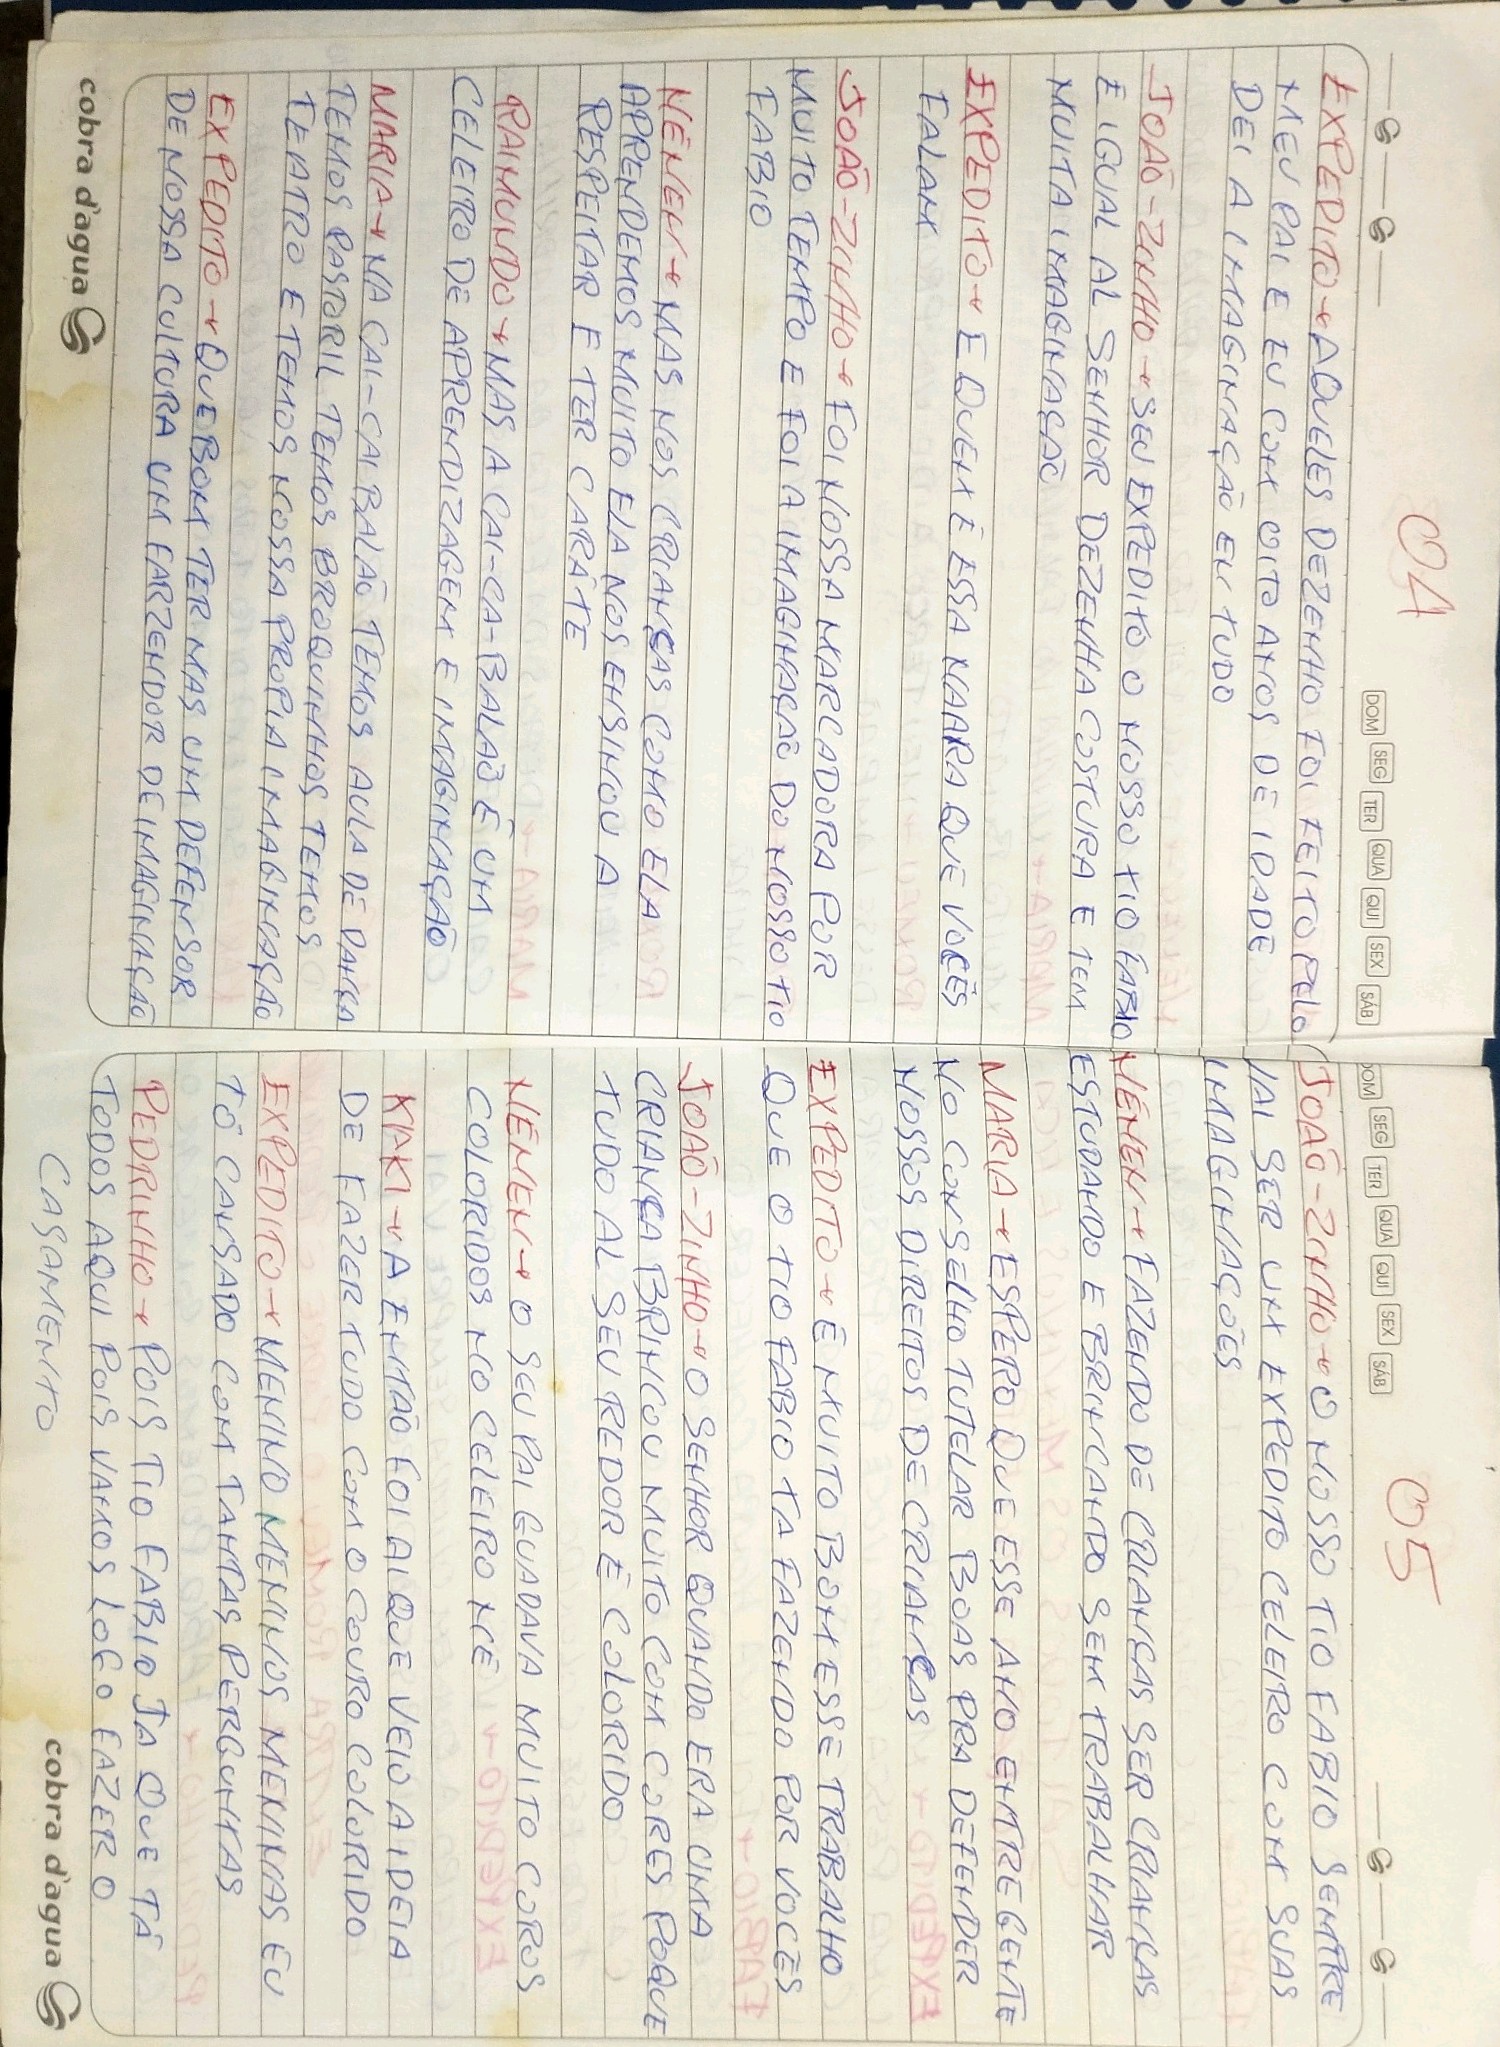 04
DOM SEG TER QUA QUI SEX SÁB
EXPEDITO → AQUELES DEZENHO FOI FEITO PELO
MEU PAI E EU COM OITO ANOS DE IDADE
DEI A IMAGINAÇÃO EM TUDO
JOÃO-ZINHO → SEU EXPEDITO O NOSSO TIO FABIO
E IGUAL AL SENHOR DEZENHA COSTURA E TEM
MUITA IMAGINAÇÃO
EXPEDITO → E QUEM É ESSA NAARA QUE VOCÊS
FALAM
JOÃO-ZINHO → FOI NOSSA MARCADORA POR
MUITO TEMPO E FOI A IMAGINAÇÃO DO NOSSO TIO
FABIO
NÊNEN → MAS NOS CRIANÇAS COMO ELA
APRENDEMOS MUITO ELA NOS ENSINOU A
RESPEITAR E TER CARÂTE
RAIMUNDO → MAS A CAI-CA-BALAÕ É UM
CELEIRO DE APRENDIZAGEM E IMAGINAÇÃO
MARIA → NA CAI-CAI BALÃO TEMOS AULA DE DANÇA
TEMOS PASTORIL TEMOS BROQUINHOS TEMOS
TEATRO E TEMOS NOSSA PROPIA IMAGINAÇÃO
EXPEDITO → QUE BOM TER MAS UM DEFENSOR
DE NOSSA CULTURA UM FARZENDOR DE IMAGINAÇÃO
cobra d'agua
05
DOM SEG TER QUA QUI SEX SÁB
JOÃO-ZINHO → O NOSSO TIO FABIO SEMPRE
VAI SER UM EXPEDITO CELEIRO COM SUAS
IMAGINAÇÕES
NÊNEN → FAZENDO DE CRIANÇAS SER CRIANÇAS
ESTUDANDO E BRINCANDO SEM TRABALHAR
MARIA → ESPERO QUE ESSE ANO ENTRE GENTE
NO CONSELHO TUTELAR BOAS PRA DEFENDER
NOSSOS DIREITOS DE CRIANÇAS
EXPEDITO → É MUITO BOM ESSE TRABALHO
QUE O TIO FABIO TA FAZENDO POR VOCÊS
JOAÕ-ZINHO → O SENHOR QUANDO ERA UMA
CRIANÇA BRINCOU MUITO COM CORES POQUE
TUDO AL SEU REDOR É COLORIDO
NÊNEN → O SEU PAI GUADAVA MUITO COROS
COLORIDOS NO CELEIRO NÉ
KAKI → A ENTÃO FOI AI QUE VEIO A IDEIA
DE FAZER TUDO COM O COURO COLORIDO
EXPEDITO → MENINO MENINOS MENINAS EU
TÔ CANSADO COM TANTAS PERGUNTAS
PEDRINHO → POIS TIO FABIO JA QUE TÁ
TODOS AQUI POIS VAMOS LOGO FAZER O
CASAMENTO
cobra d'agua